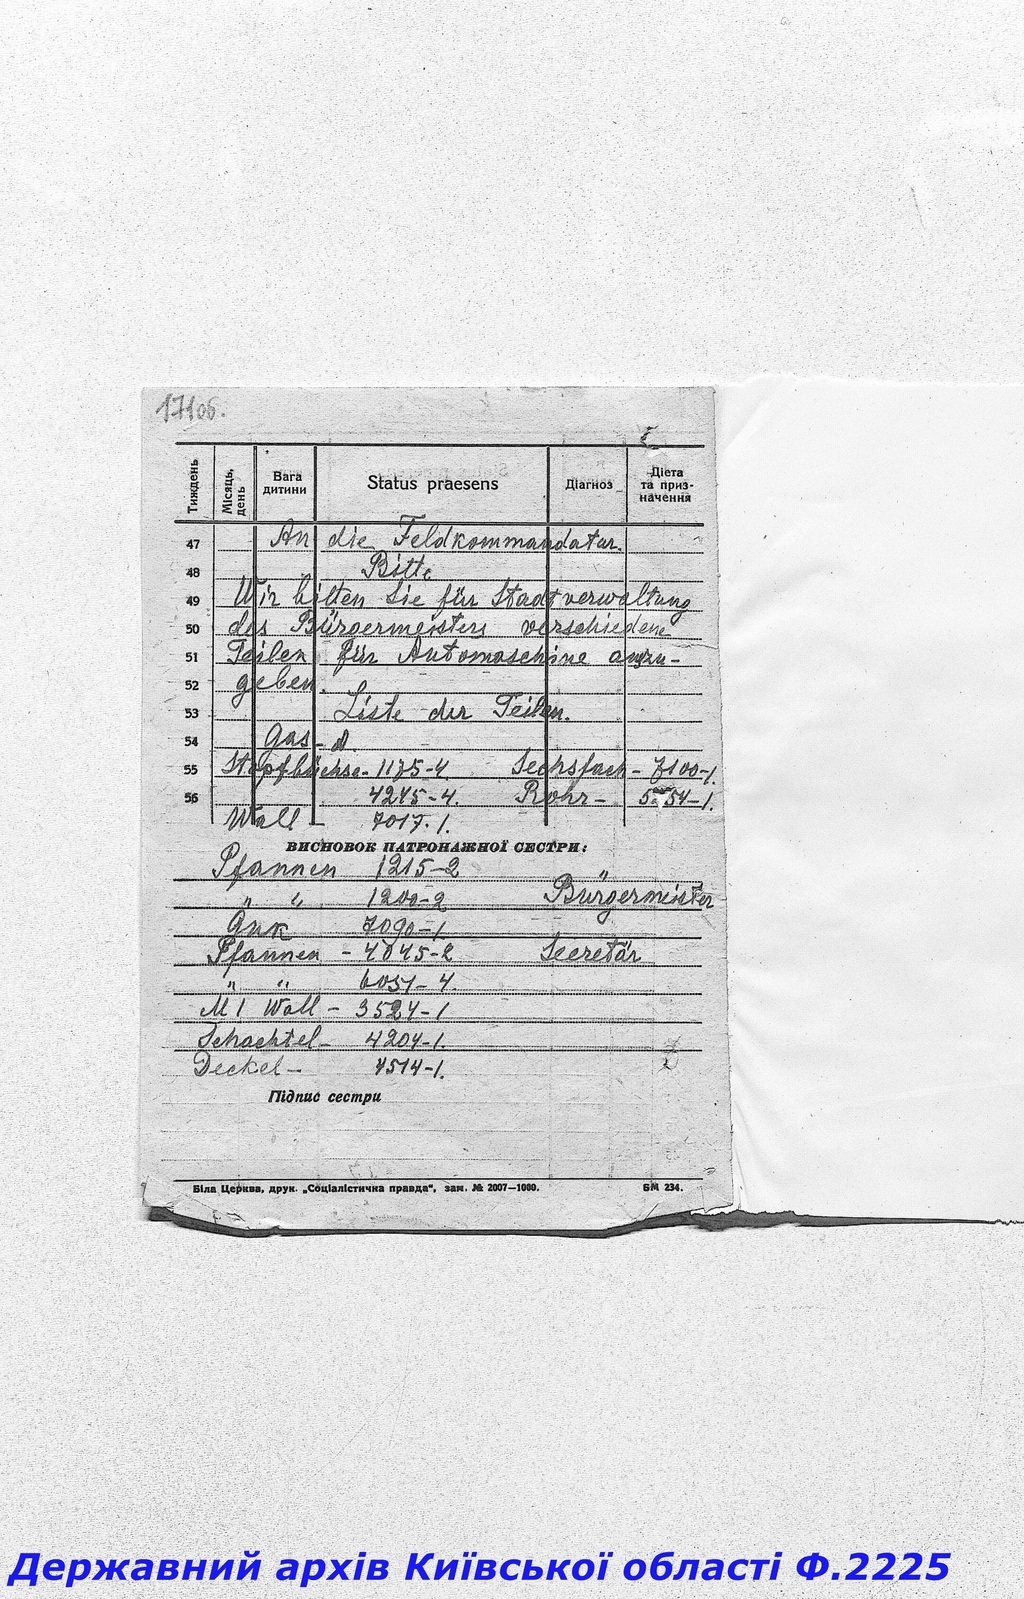 171об.
Тиждень Місяць, день Вага дитини Status praesens Діагноз Дієта та приз-значення
47 An die Feldkommandatur.
48 Bitte
49 Wir bitten Sie für Stadtverwaltung
50 des Bürgermeisters verschiedene
51 Teilen für Automaschine auszu-
52 geben.
53 Liste der Teilen.
54 Gas-A.
55 Stopfbüchse- 1175-4. Sechsfach- 7100-1.
56 4245-4. Rohr- 5754-1.
Wall - 7017-1.
ВИСНОВОК ПАТРОНАЖНОЇ СЕСТРИ:
Pfannen 1215-2
" " 1200-2 Bürgermeister
7090-1
Pfannen - 4045-2 Secretär
" " 6051-4.
M 1 Wall - 3524-1
Schachtel- 4204-1.
Deckel- 7514-1.
Підпис сестри
Біла Церква, друк. „Соціалістична правда“, зам. № 2007—1000. БМ 234.
Державний архів Київської області Ф.2225